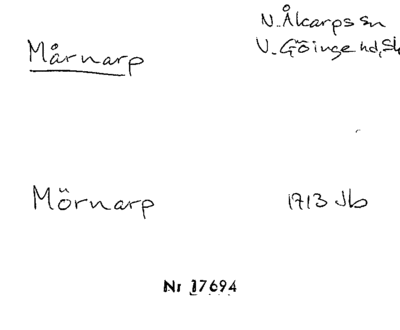 Mårnarp
N. Åkarps sn
V. Göinge hd, Sk
Mörnarp
1713 Jb
Nr 17694